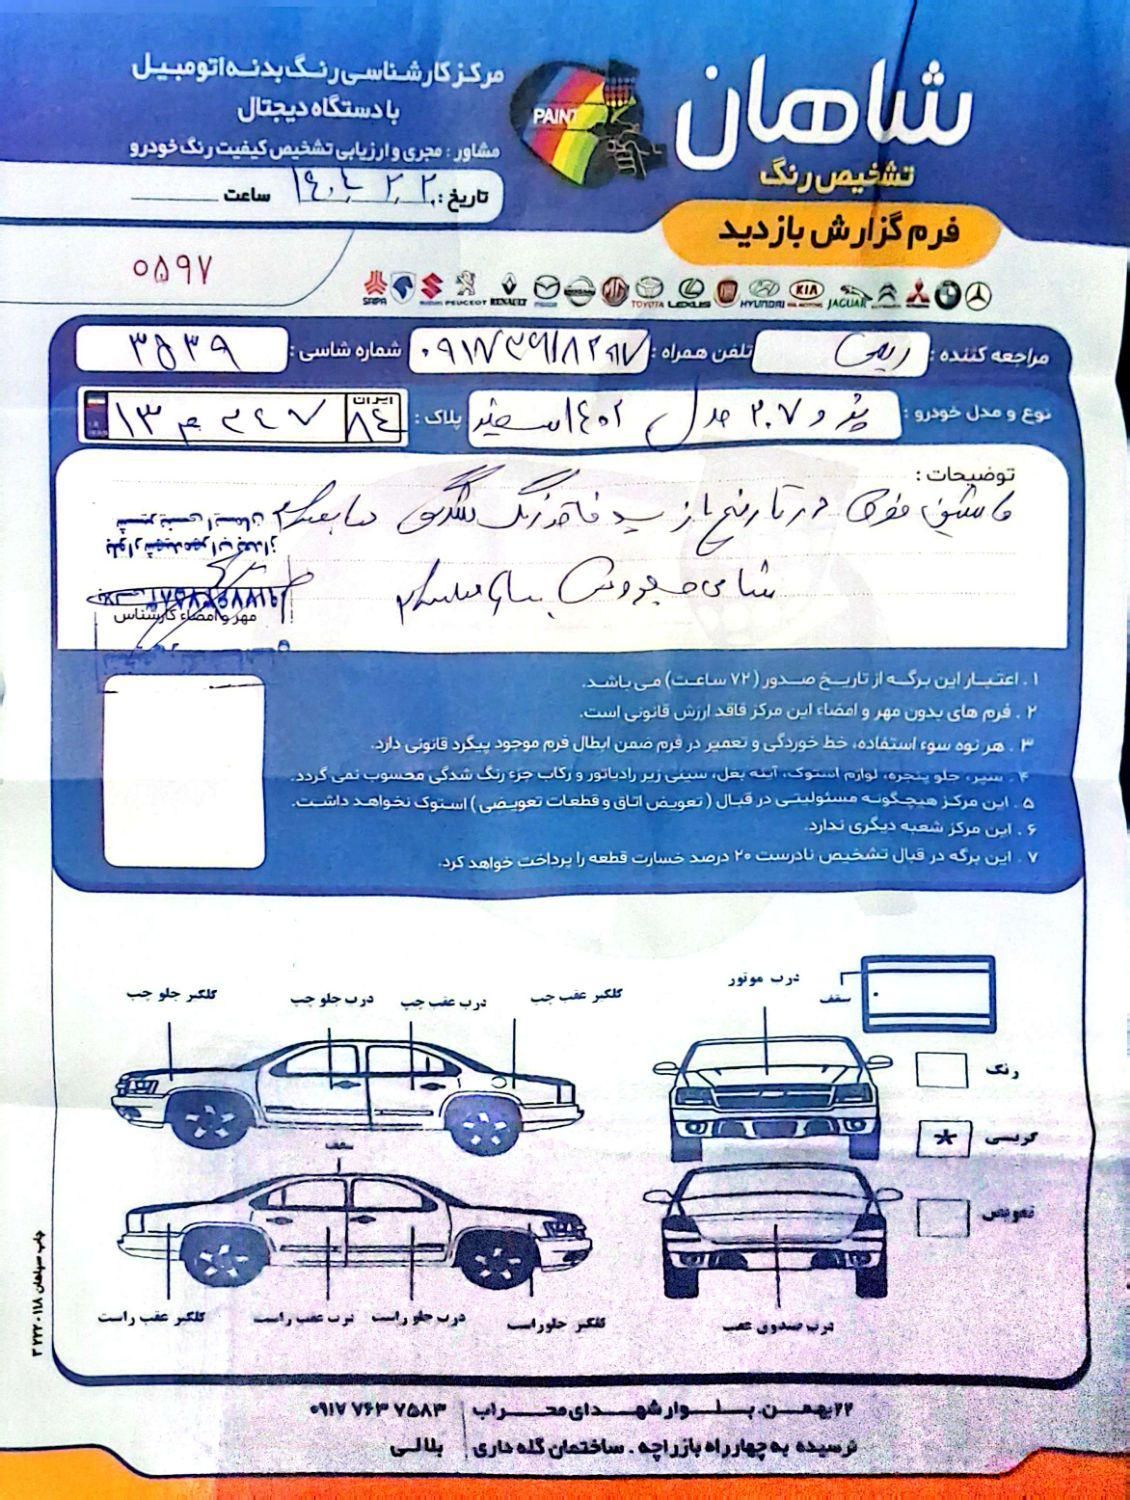 شاهان
تشخیص رنگ
PAINT
مرکز کارشناسی رنگ بدنه اتومبیل
با دستگاه دیجتال
مشاور : مجری و ارزیابی تشخیص کیفیت رنگ خودرو
تاریخ : ساعت
فرم گزارش بازدید
۰۵۹۷
SAIPA SUZUKI PEUGEOT RENAULT MAZDA TOYOTA LEXUS HYUNDAI KIA JAGUAR
مراجعه کننده : تلفن همراه : شماره شاسی : ۳۵۳۹
نوع و مدل خودرو : پژو ۲۰۷ مدل ۱۴۰۲ سفید پلاک : ایران ۸۴
توضیحات :
ماشین فوق در تاریخ بازدید فاقد رنگ شدگی
مهر و امضاء کارشناس
۱ . اعتبار این برگه از تاریخ صدور (۷۲ ساعت) می باشد.
۲ . فرم های بدون مهر و امضاء این مرکز فاقد ارزش قانونی است.
۳ . هر نوه سوء استفاده، خط خوردگی و تعمیر در فرم ضمن ابطال فرم موجود پیگرد قانونی دارد.
۴ . سپر، جلو پنجره، لوازم استوک، آینه بغل، سینی زیر رادیاتور و رکاب جزء رنگ شدگی محسوب نمی گردد.
۵ . این مرکز هیچگونه مسئولیتی در قبال ( تعویض اتاق و قطعات تعویضی ) استوک نخواهد داشت.
۶ . این مرکز شعبه دیگری ندارد.
۷ . این برگه در قبال تشخیص نادرست ۲۰ درصد خسارت قطعه را پرداخت خواهد کرد.
سقف
درب موتور
گلگیر عقب چپ درب عقب چپ درب جلو چپ گلگیر جلو چپ
رنگ
گریسی *
تعویض
سقف
درب صندوق عقب
گلگیر جلو راست درب جلو راست درب عقب راست گلگیر عقب راست
چاپ سپاهان ۳۲۲۲۰۱۱۸
۲۲بهمن. بلوار شهدای محراب ۰۹۱۷ ۷۶۳ ۷۵۸۳
نرسیده به چهارراه بازراچه . ساختمان گله داری بلالی